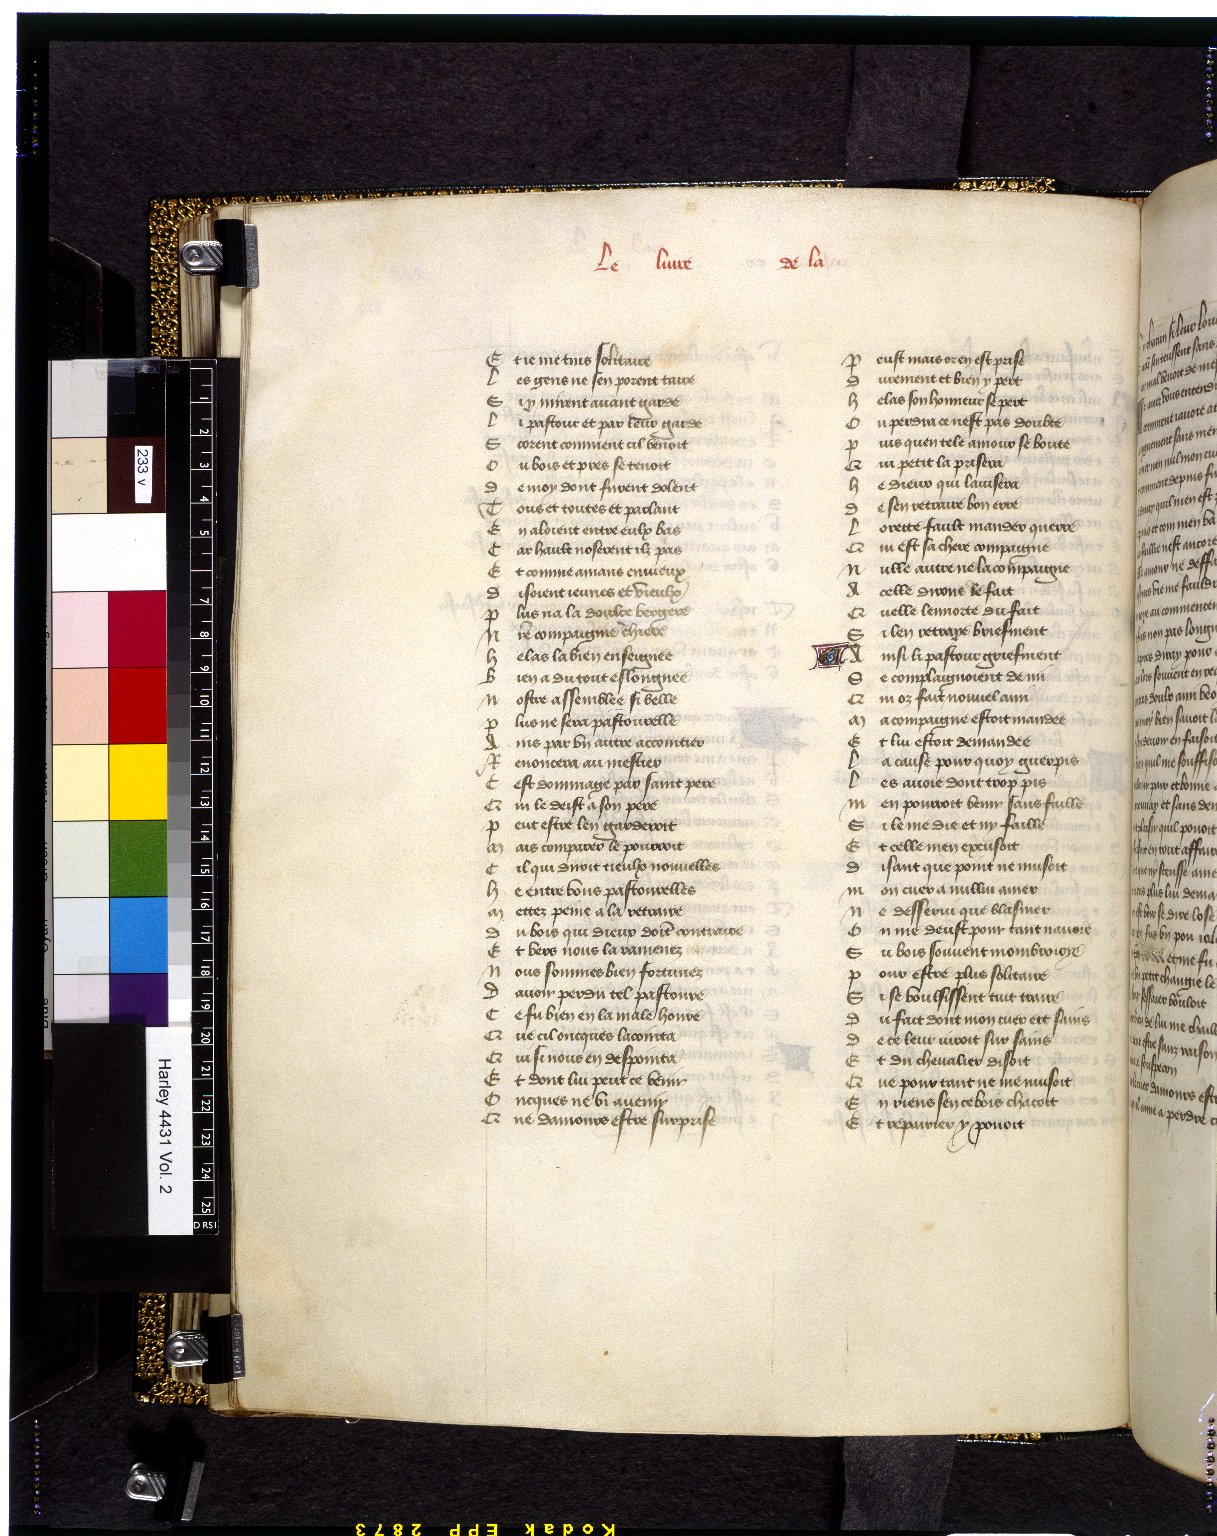 Le liure de la
E t ie me tins solitaire
L es gens ne sen porent taire
S i y mirent auant garde
L i pastour et par leur garde
S corent comment cil venoit
O u bois et pres se tenoit
D e moy dont furent dolent
T ous et toutes et parlant
E n aloient entre eulx bas
C ar hault noserent ilz pas
E t comme amans enuieux
D isoient ieunes et vieulx
P lus na la doulce bergere
N re compaigne chiere
H elas la bien enseignee
B ien a du tout eslongnee
N ostre assemblee si belle
P lus ne sera pastourelle
A ins par vn autre accointier
R enoncera au mestier
C est dommage par saint pere
Q ui le deist a son pere
P eut estre len garderoit
M ais comparer le pourroit
C il qui diroit tieulx nouuelles
H e entre vous pastourelles
M ettez peine a la retraire
D u bois qui dieux doit contraire
E t vers nous la ramenez
N ous sommes bien fortunez
D auoir perdu tel pastoure
C e fu bien en la male houre
Q ue cil oncques lacointa
Q ui si nous en despointa
E t dont lui peut ce venir
O ncques ne vi auenir
Q ue damours estre surprise
P eust mais oren est prise
D urement et bien y pert
H elas son honneur se pert
O n perdra ce nest pas doubte
P uis quen tele amour se boute
Q ui petit la prisera
H e dieux qui lauisera
D e sen retraire bon erre
L orete fault mander querre
Q ui est sa chere compaigne
N ulle autre ne la compaigne
A celle dirons le fait
Q uelle lennorte du fait
S i len retraye briefment
A insi li pastour griefment
S e complaignoient de mi
Q ui oz fait nouuel ami
M a compaigne estoit mandee
E t lui estoit demandee
L a cause pour quoy guerpis
L es auoie dont trop pis
M en pourroit venir sans faille
S i le me die et ny faille
E t celle men excusoit
D isant que point ne musoit
M on cuer a nullui amer
N e desserui que blasmer
O n me deust pour tant nauoie
S u bois souuent mombroioye
P our estre plus solitaire
S i se voulsissent tuit traire
D u fait dont mon cuer ert sains
D e ce leur iuroit sur sains
E t du cheualier disoit
Q ue pour tant ne me musoit
E n riens sen ce bois chacoit
E t repairier y pouoit
233 v
Harley 4431 Vol. 2
Kodak EPP 2873